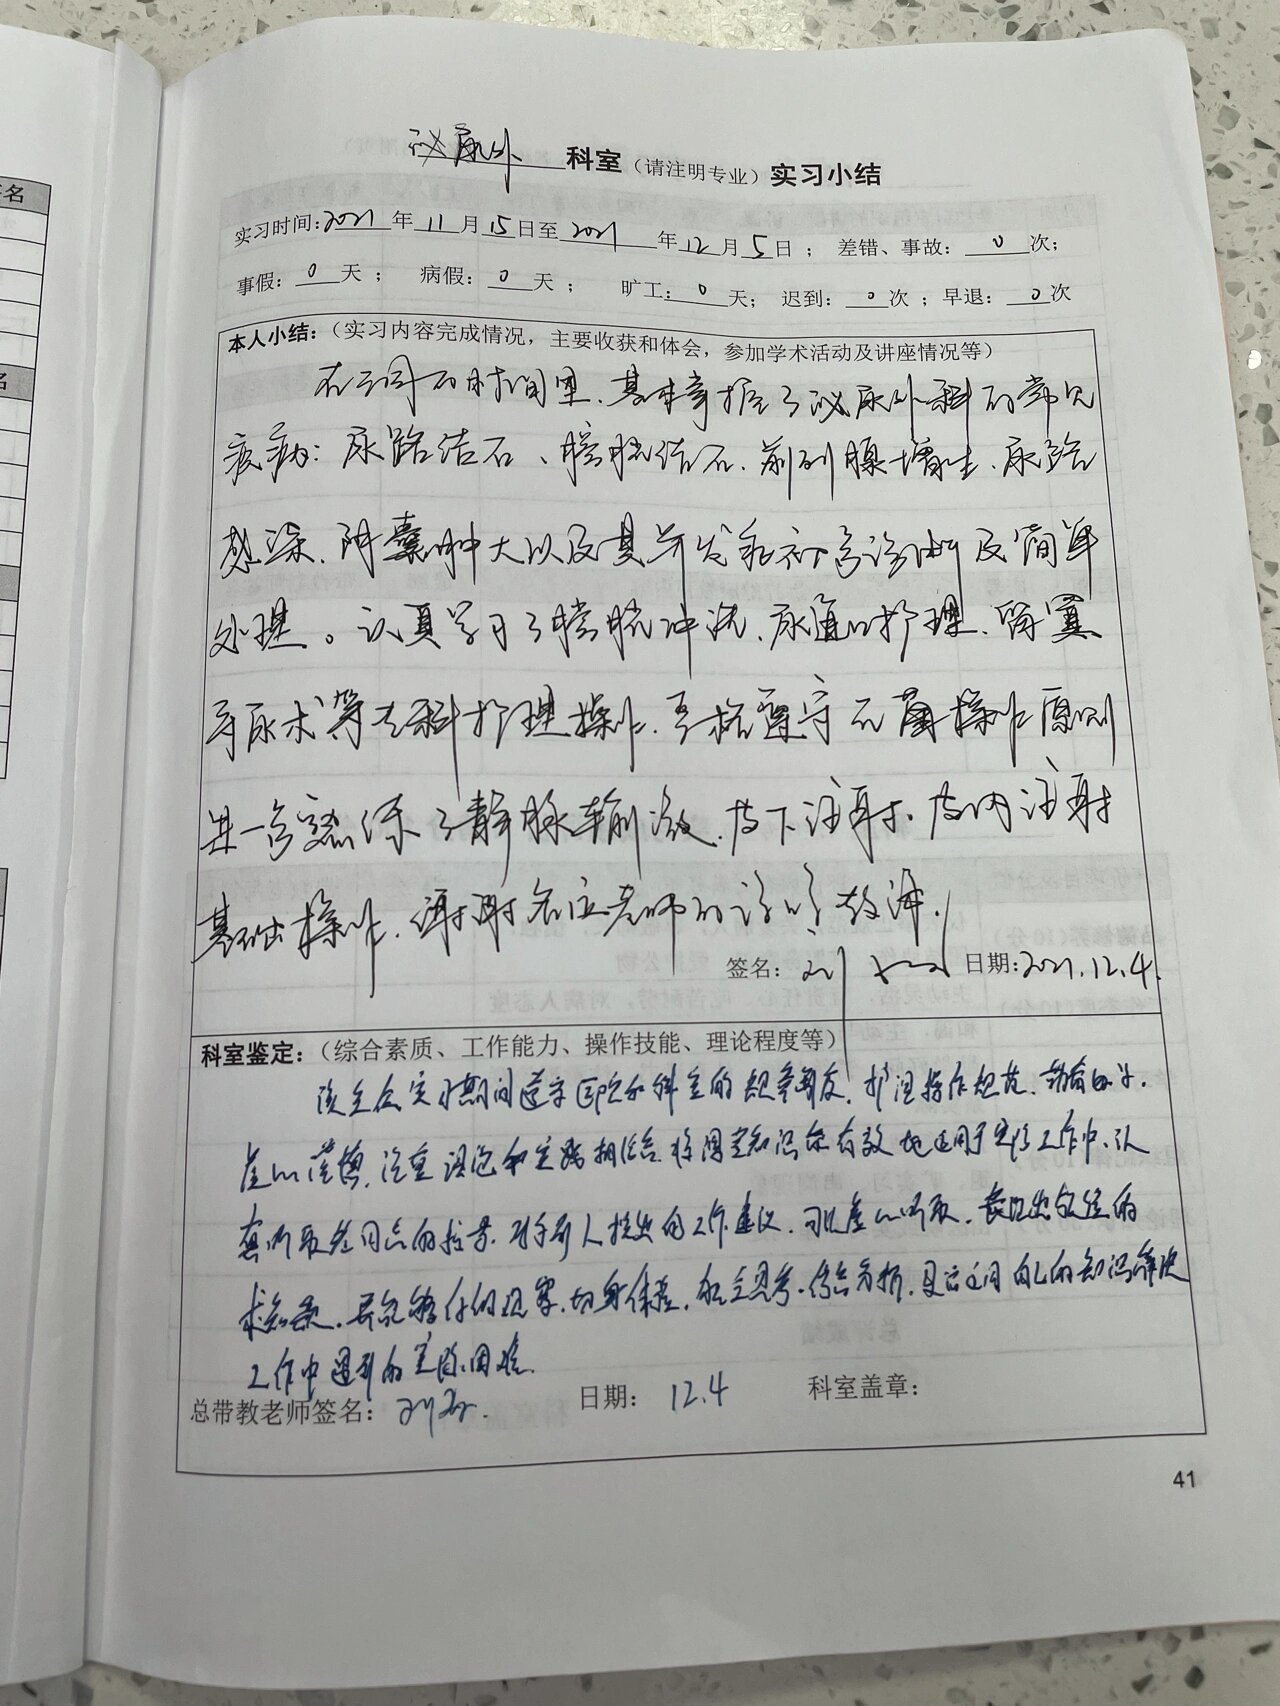 泌尿外 科室（请注明专业）实习小结
实习时间：2021 年 11 月 15 日至 2021 年 12 月 5 日； 差错、事故： 0 次；
事假： 0 天； 病假： 0 天； 旷工： 0 天； 迟到： 0 次；早退： 0 次
本人小结：（实习内容完成情况，主要收获和体会，参加学术活动及讲座情况等）
在三周的时间里、基本掌握了泌尿外科的常见
疾病：尿路结石、膀胱结石、前列腺增生、尿路
感染、阴囊肿大以及其并发症初步诊断及简单
处理。认真学习了膀胱冲洗、尿道口护理、留置
导尿术等专科护理操作、严格遵守无菌操作原则
进一步熟练了静脉输液、皮下注射、皮内注射
基础操作、谢谢各位老师的谆谆教诲。
签名： 刘 日期：2021.12.4.
科室鉴定：（综合素质、工作能力、操作技能、理论程度等）
该生在实习期间遵守医院和科室的规章制度、护理操作规范、勤奋好学、
虚心谨慎、注重理论和实践相结合、将课堂知识有效地运用于实际工作中、认
真听取老同志的指导、对于别人提出的工作建议、可以虚心听取、表现出较强的
求知欲、并能够仔细观察、切身体验、独立思考、综合分析、灵活运用自己的知识解决
工作中遇到的实际困难.
总带教老师签名： 刘 日期： 12.4 科室盖章：
41
名
名